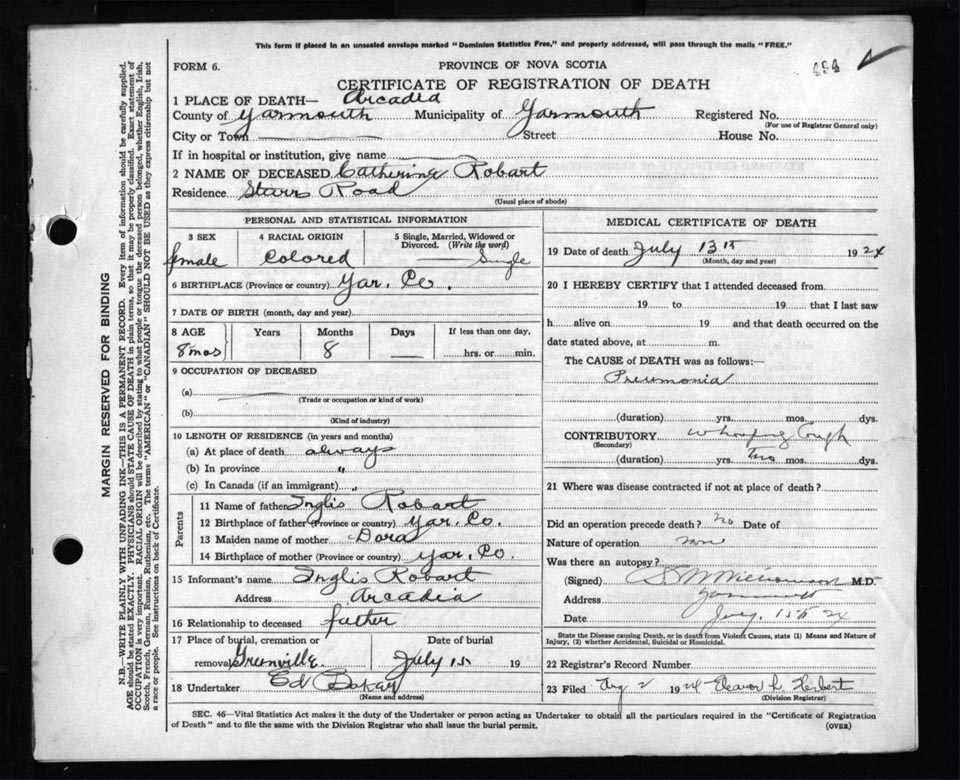 This form if placed in an unsealed envelope marked "Dominion Statistics Free," and properly addressed, will pass through the mails "FREE."
FORM 6.
PROVINCE OF NOVA SCOTIA
494
CERTIFICATE OF REGISTRATION OF DEATH
1 PLACE OF DEATH— Arcadia
County of Yarmouth Municipality of Yarmouth Registered No.
(For use of Registrar General only)
City or Town Street House No.
If in hospital or institution, give name
2 NAME OF DECEASED Catherine Robart
Residence Starrs Road
(Usual place of abode)
PERSONAL AND STATISTICAL INFORMATION
3 SEX 4 RACIAL ORIGIN 5 Single, Married, Widowed or Divorced. (Write the word)
female Colored Single
6 BIRTHPLACE (Province or country) Yar. Co.
7 DATE OF BIRTH (month, day and year)
8 AGE Years Months Days If less than one day,
8 mos 8 — hrs. or min.
9 OCCUPATION OF DECEASED
(a)
(Trade or occupation or kind of work)
(b)
(Kind of industry)
10 LENGTH OF RESIDENCE (in years and months)
(a) At place of death always
(b) In province "
(c) In Canada (if an immigrant) "
Parents
11 Name of father Inglis Robart
12 Birthplace of father (Province or country) Yar. Co.
13 Maiden name of mother Dora
14 Birthplace of mother (Province or country) Yar. Co.
15 Informant's name Inglis Robart
Address Arcadia
16 Relationship to deceased father
17 Place of burial, cremation or Date of burial
removal Greenville. July 15 19
18 Undertaker Ed
(Name and address)
MEDICAL CERTIFICATE OF DEATH
19 Date of death July 13th 1924
(Month, day and year)
20 I HEREBY CERTIFY that I attended deceased from
19 to 19 that I last saw
h alive on 19 and that death occurred on the
date stated above, at m.
The CAUSE of DEATH was as follows:—
Pneumonia
(duration) yrs. mos. dys.
CONTRIBUTORY Whooping Cough
(Secondary)
(duration) yrs. Two mos. dys.
21 Where was disease contracted if not at place of death?
Did an operation precede death? no Date of
Nature of operation
Was there an autopsy?
(Signed) M.D.
Address Yarmouth
Date 15th 24
State the Disease causing Death, or in death from Violent Causes, state (1) Means and Nature of
Injury, (2) whether Accidental, Suicidal or Homicidal.
22 Registrar's Record Number
23 Filed Aug 2 1924 Eleanor L. Herbert
(Division Registrar)
SEC. 46—Vital Statistics Act makes it the duty of the Undertaker or person acting as Undertaker to obtain all the particulars required in the "Certificate of Registration
of Death" and to file the same with the Division Registrar who shall issue the burial permit.
(OVER)
MARGIN RESERVED FOR BINDING
N.B.—WRITE PLAINLY WITH UNFADING INK—THIS IS A PERMANENT RECORD. Every item of information should be carefully supplied.
AGE should be stated EXACTLY. PHYSICIANS should STATE CAUSE OF DEATH in plain terms, so that it may be properly classified. Exact statement of
OCCUPATION is very important. RACIAL ORIGIN will be described by stating to what people or tongue the deceased person belonged, whether English, Irish,
Scotch, French, German, Russian, Ruthenian, etc. The terms "AMERICAN" or "CANADIAN" SHOULD NOT BE USED as they express citizenship but not
a race or people. See instructions on back of Certificate.